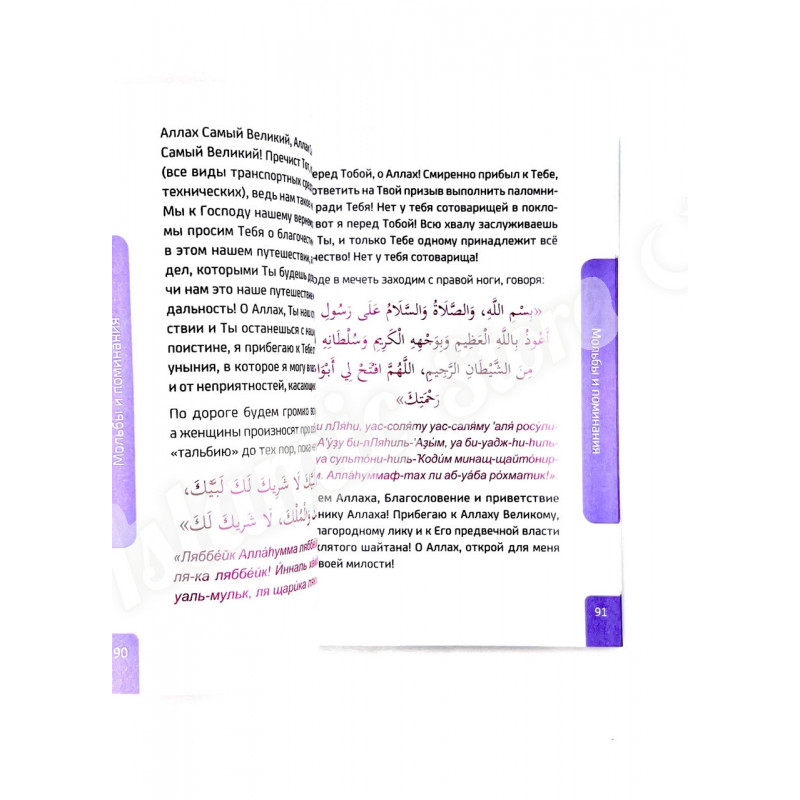 Аллах Самый Великий,
Самый Великий! Пречист
(все виды транспортных
технических), ведь нам
Мы к Господу нашему
мы просим Тебя о
в этом нашем путешествии,
дел, которыми Ты будешь
чи нам это наше
дальность! О Аллах, Ты
ствии и Ты останешься с
поистине, я прибегаю к Тебе
уныния, в которое я могу
и от неприятностей,
По дороге будем громко
а женщины произносят про
«тальбию» до тех пор,
لَا شَرِيكَ لَكَ لَبَّيْكَ،
وَالْمُلْكَ، لَا شَرِيكَ لَكَ»
«Ляббе́йк Алла́hумма
ля-ка ляббе́йк! И́нналь
уаль-мульк, ля щари́ка
Мольбы и поминания
90
перед Тобой, о Аллах! Смиренно прибыл к Тебе,
ответить на Твой призыв выполнить паломни-
ради Тебя! Нет у тебя сотоварищей в покло-
вот я перед Тобой! Всю хвалу заслуживаешь
Ты, и только Тебе одному принадлежит всё
чество! Нет у Тебя сотоварища!
де в мечеть заходим с правой ноги, говоря:
«بِسْمِ اللَّهِ، وَالصَّلَاةُ وَالسَّلَامُ عَلَى رَسُولِ
أَعُوذُ بِاللَّهِ الْعَظِيمِ وَبِوَجْهِهِ الْكَرِيمِ وَسُلْطَانِهِ
مِنَ الشَّيْطَانِ الرَّجِيمِ، اللَّهُمَّ افْتَحْ لِي
رَحْمَتِكَ»
лЛя́hи, уас-соля́ту уас-саля́му 'аля́ росу́ли-
А'у́ҙу би-лЛяhиль-'Аҙы́м, уа би-уадж-hи-hиль-
уа сульто́ни-hиль-Ќоди́м минащ-щайто́нир-
им. Алла́hуммаф-тах ли аб-уа́ба ро́хматик!».
ем Аллаха, Благословение и приветствие
нику Аллаха! Прибегаю к Аллаху Великому,
лагородному лику и к Его предвечной власти
клятого шайтана! О Аллах, открой для меня
воей милости!
Мольбы и поминания
91